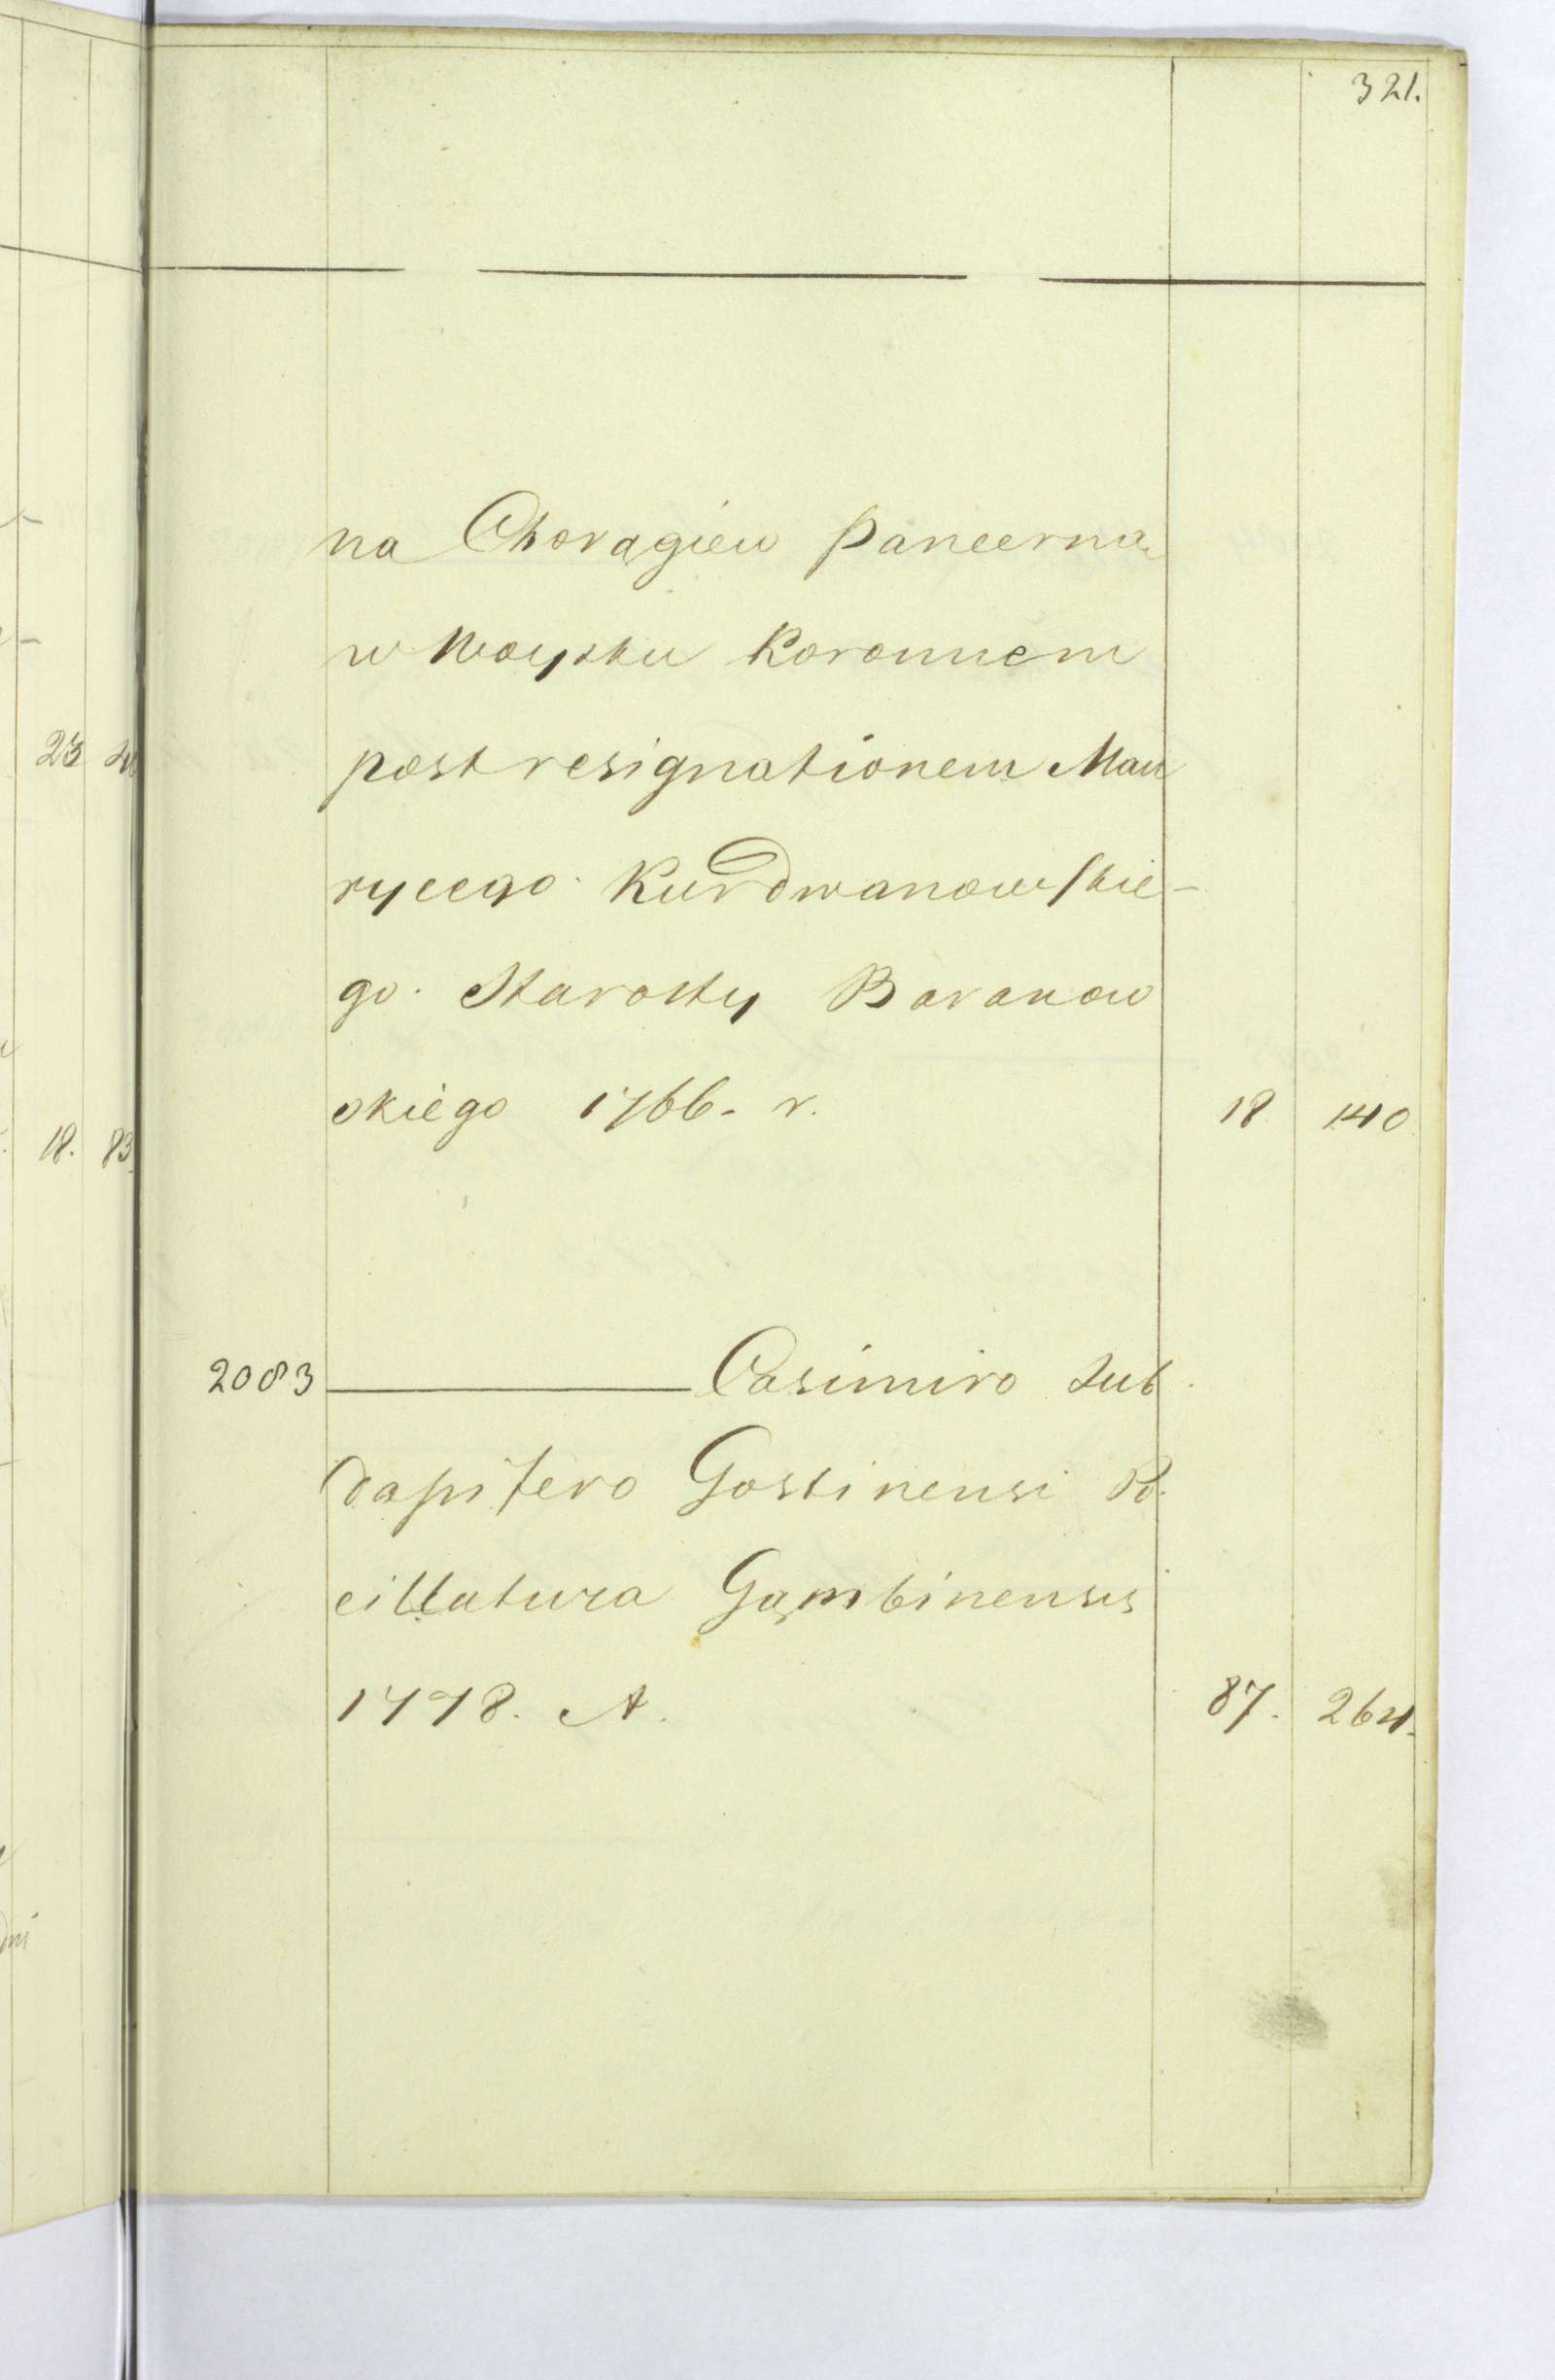 321.
na Chorągiew Pancerną
w Woysku Koronnem
post resignationem Mau
rycego Kurdwanowskie-
go Starosty Baranow
skiego 1766. r. 18 140
2083 ——— Casimiro Sub
dapifero Gostinensi Bu
cillatura Gąmbinensis
1778. A. 87. 264.
23
18. 83